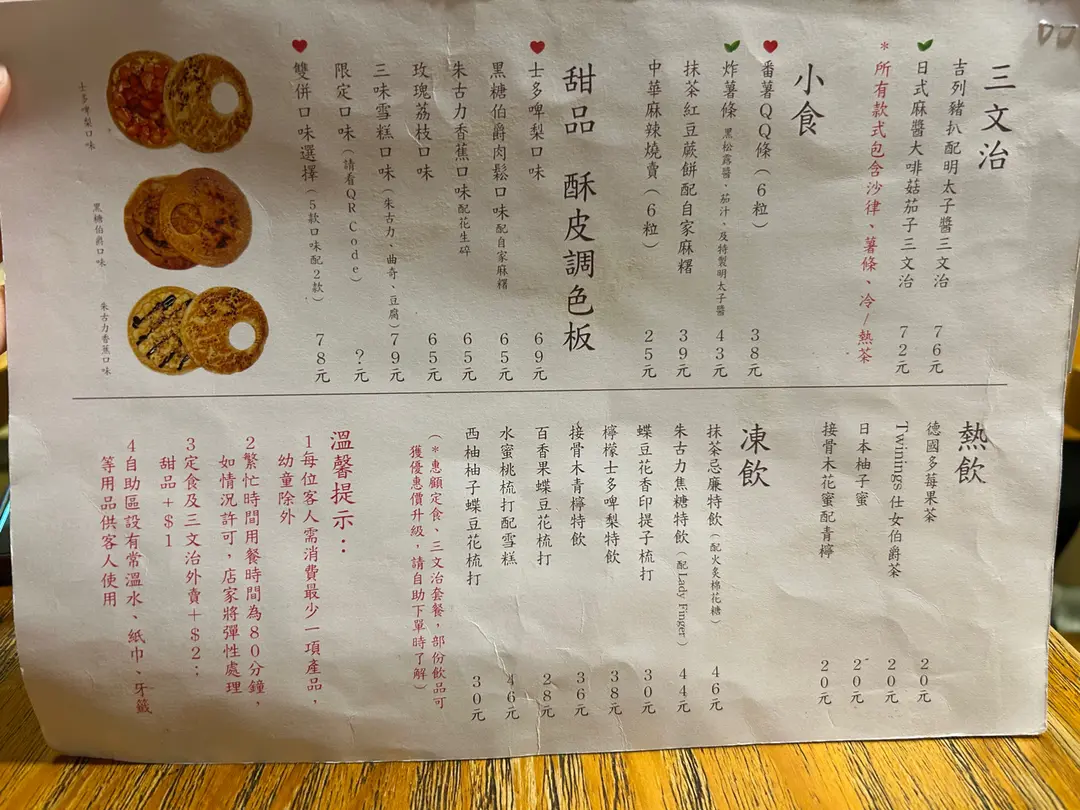 三文治
吉列豬扒配明太子醬三文治 76元
日式麻醬大啡菇茄子三文治 72元
*所有款式包含沙律、薯條、冷/熱茶
小食
番薯QQ條(6粒) 38元
炸薯條 黑松露醬、茄汁、及特製明太子醬 43元
抹茶紅豆蕨餅配自家麻糬 39元
中華麻辣燒賣(6粒) 25元
甜品 酥皮調色板
士多啤梨口味 69元
黑糖伯爵肉鬆口味配自家麻糬 65元
朱古力香蕉口味配花生碎 65元
玫瑰荔枝口味 65元
三味雪糕口味(朱古力、曲奇、豆腐) 79元
限定口味(請看QR Code) ?元
雙併口味選擇(5款口味配2款) 78元
士多啤梨口味
黑糖伯爵口味
朱古力香蕉口味
熱飲
德國多莓果茶 20元
Twinings仕女伯爵茶 20元
日本柚子蜜 20元
接骨木花蜜配青檸 20元
凍飲
抹茶忌廉特飲(配火炙棉花糖) 46元
朱古力焦糖特飲(配Lady Finger) 44元
蝶豆花香印提子梳打 30元
檸檬士多啤梨特飲 38元
接骨木青檸特飲 36元
百香果蝶豆花梳打 28元
水蜜桃梳打配雪糕 46元
西柚柚子蝶豆花梳打 30元
(*惠顧定食、三文治套餐,部份飲品可
獲優惠價升級,請自助下單時了解)
溫馨提示:
1每位客人需消費最少一項產品,
幼童除外
2繁忙時間用餐時間為80分鐘,
如情況許可,店家將彈性處理
3定食及三文治外賣+$2:
甜品+$1
4自助區設有常溫水、紙巾、牙籤
等用品供客人使用